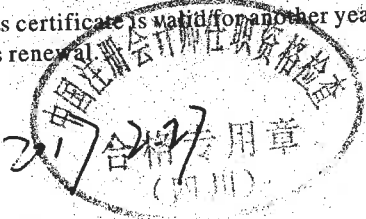 s certificate is valid for another yea
s renewal.
中国注册会计师任职资格检查
合格专用章
(四川)